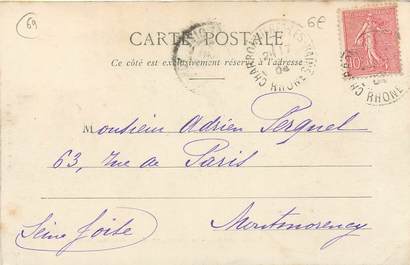 69
6€
CARTE POSTALE
Ce côté est exclusivement réservé à l'adresse
RHONE
10
RHONE
Monsieur Adrien Pergnet
63, Rue de Paris
Seine &
Montmorency